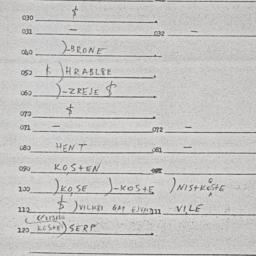 030 $
031 – 032 –
040 )-BRONE
050 $ )HRABLJE
060 )-ZREJE $
070 $
071 – 072 –
080 HENT 081 –
090 KOSTEN
100 )KOSE )-KOSTE )NISTKOSTE
110 $ )VILHEI GAP 111 VILE
120 KOSTE )SERP